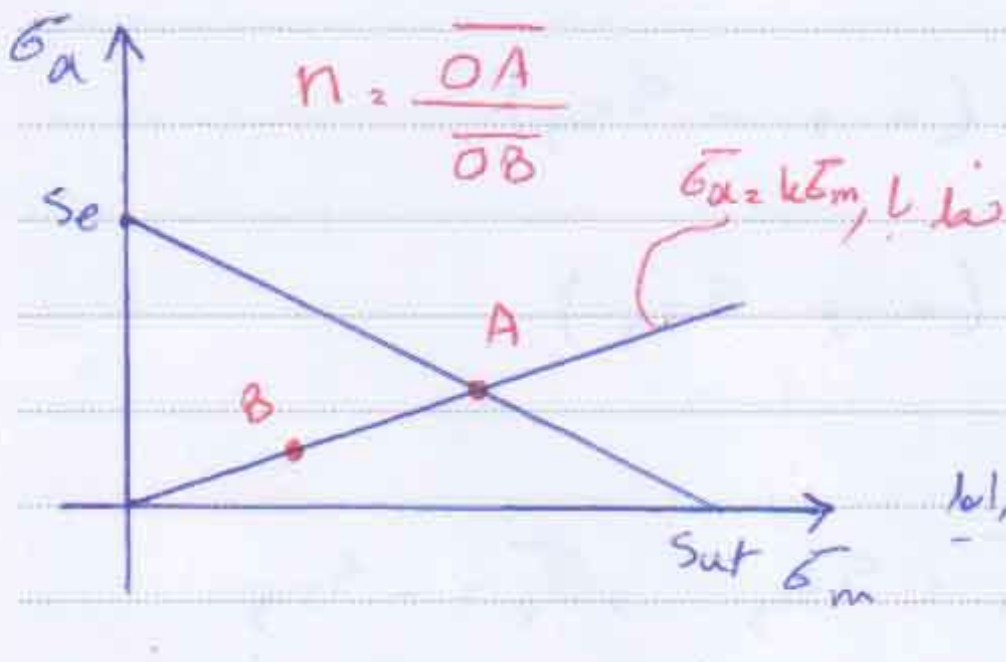 σa
n = OA / OB
Se
σa = kσm, خط
A
B
Sut σm